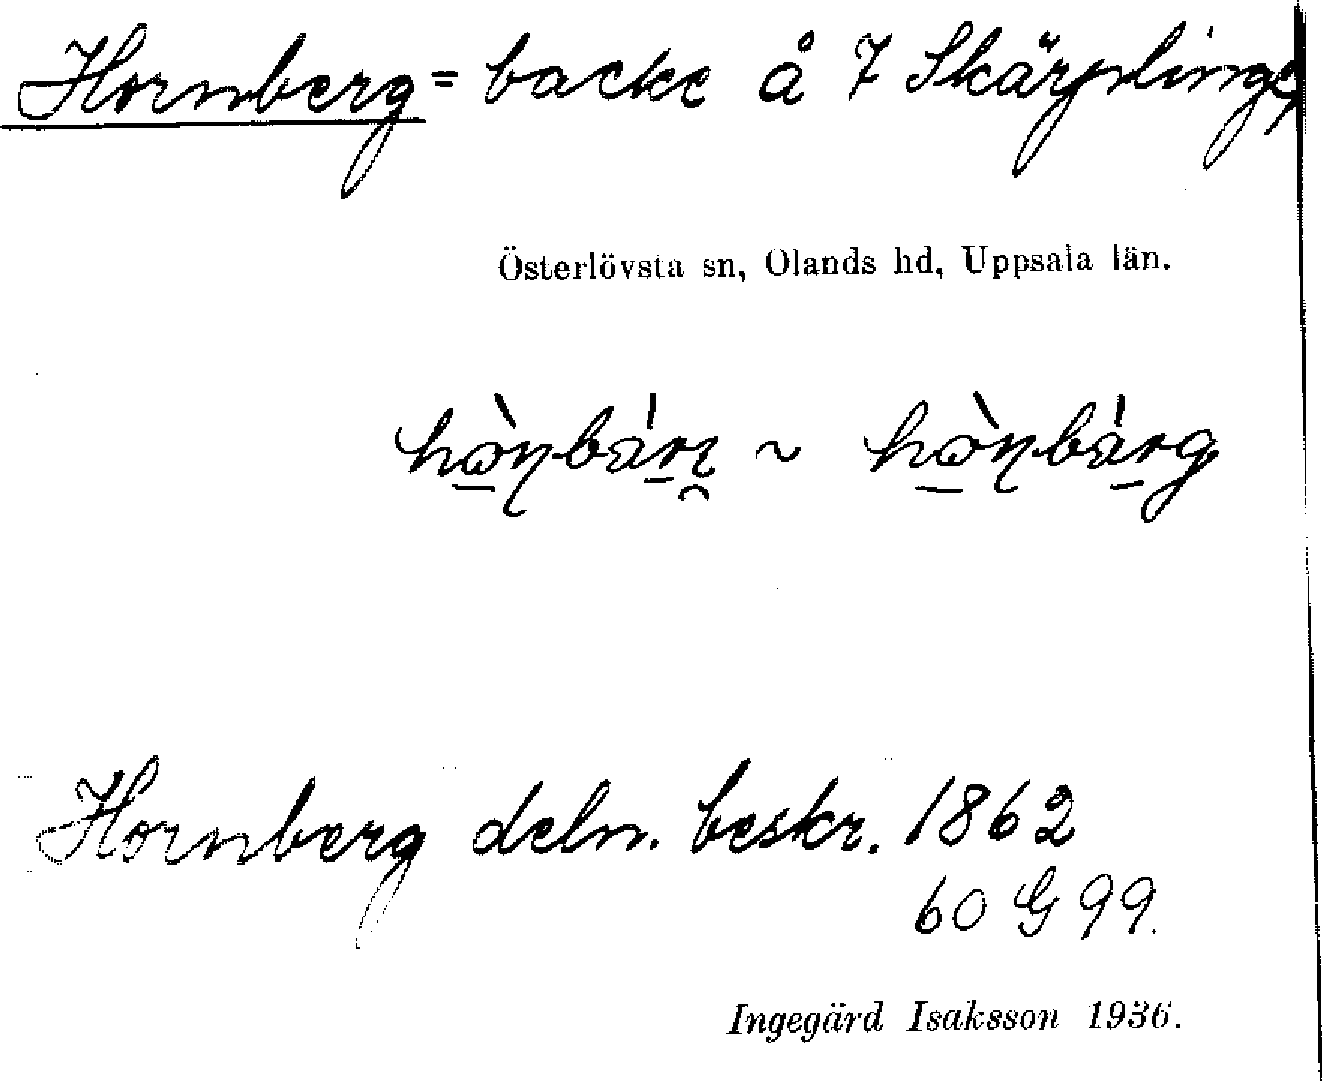 Hornberg = backe å 7 Skärplinge,
Österlövsta sn, Olands hd, Uppsala län.
Hornberg deln. beskr. 1862
60 G 99.
Ingegärd Isaksson 1936.